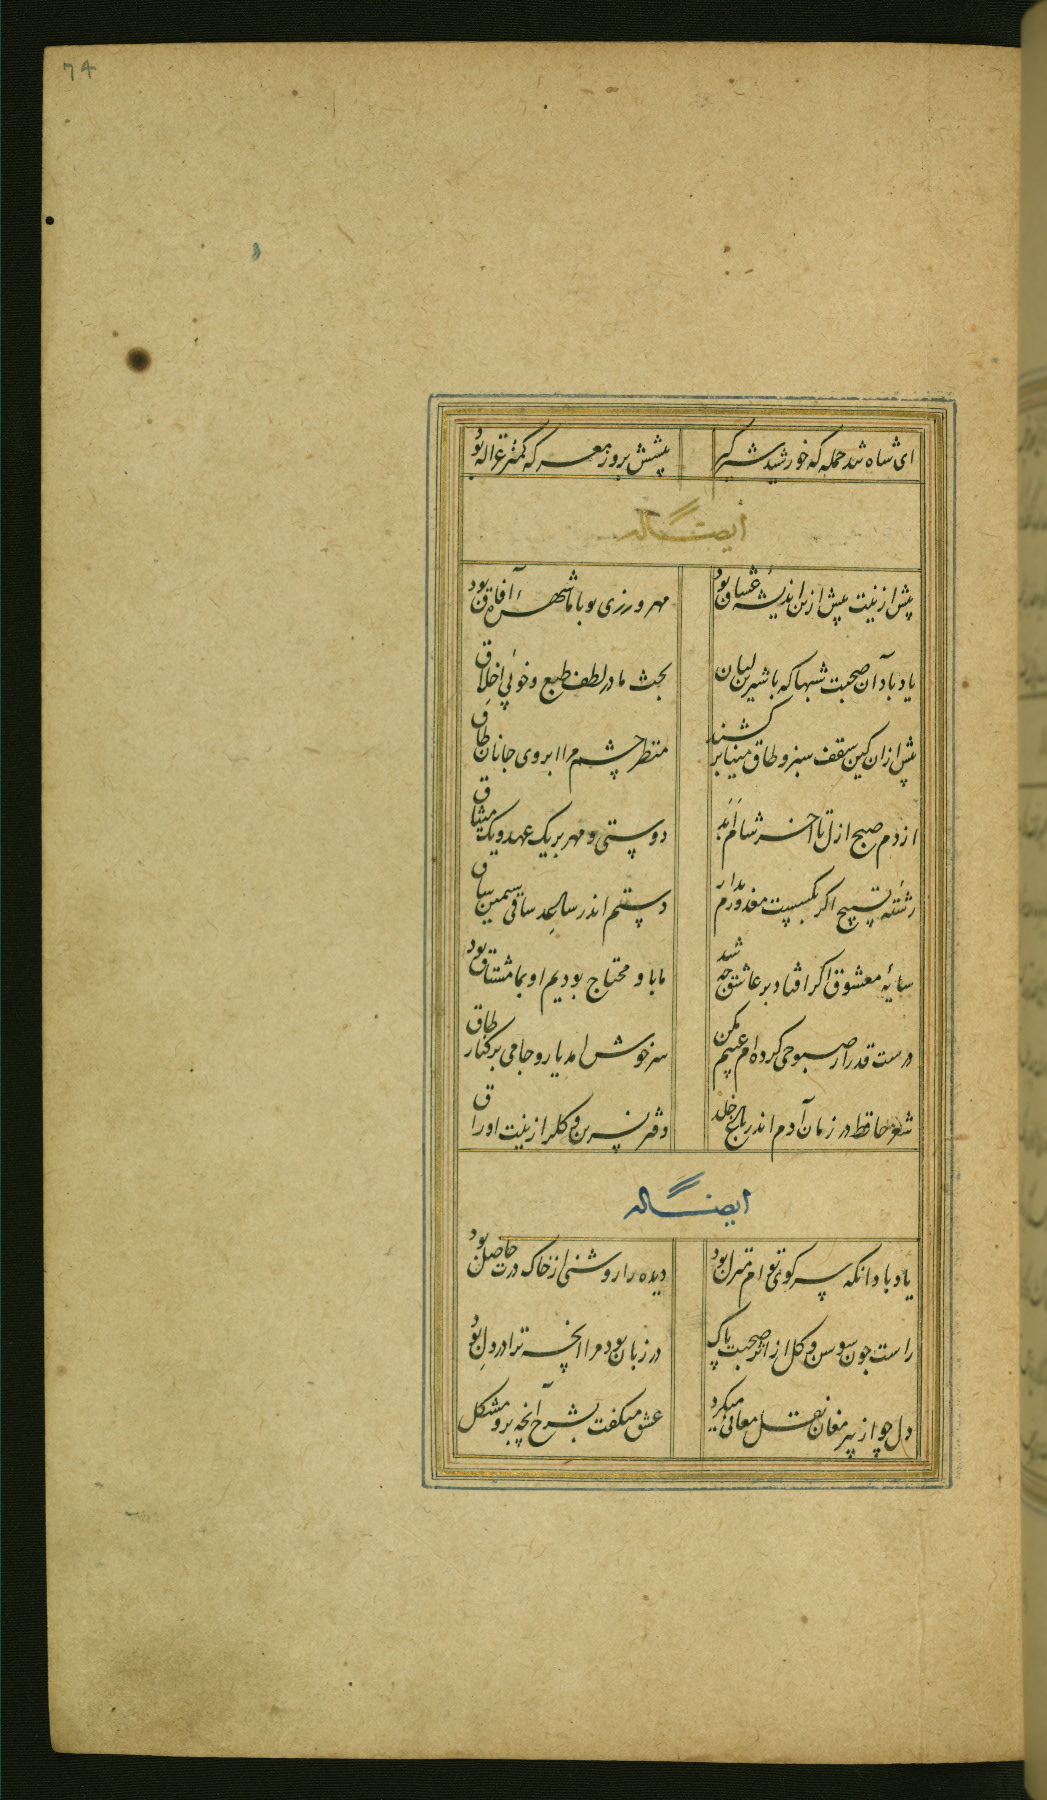 74
ای شاه شد حمله که خورشید شیر گیر
پیشش بروز معرکه کمتر غزاله بود
ایضاً له
پیش ازینت بیش ازین اندیشهٔ عشاق بود
مهر ورزی تو با ما شهرهٔ آفاق بود
یاد باد آن صحبت شبها که با شیرین لبان
بحث ما در لطف طبع و خوبی اخلاق
پیش ازان کین سقف سبز و طاق مینا برکشند
منظر چشم مرا ابروی جانان طاق
از دم صبح ازل تا آخر شام ابد
دوستی و مهر بر یک عهد و یک میثاق
رشتهٔ تسبیح اگر بگسست معذورم بدار
دستم اندر ساعد ساقی سیمین ساق
سایهٔ معشوق اگر افتاد بر عاشق چه شد
ما باو محتاج بودیم او بما مشتاق بود
در ست قدر ار صبوحی کرده ام عیبم مکن
سر خوش امد یار و جامی بر کنار طاق
شعر حافظ در زمان آدم اندر باغ خلد
دفتر نسرین و گلرا زینت اوراق
ایضاً له
یاد باد انکه سر کوی توام منزل بود
دیده را روشنی از خاک درت حاصل بود
راست چون سوسن و گل از اثر صحبت پاک
در زبان بود مرا انچه ترا در دل بود
دل چو از پیر مغان نقل معانی میکرد
عشق میگفت بشرح آنچه برو مشکل